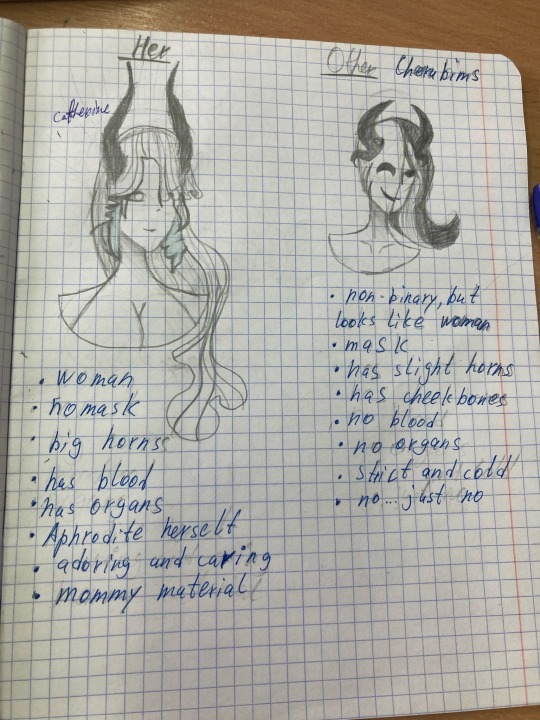 Her
Catherine
• woman
• no mask
• big horns
• has blood
• has organs
• Aphrodite herself
• adoring and caring
• mommy material
Other Cherubims
• non-binary, but
looks like woman
• mask
• has slight horns
• has cheekbones
• no blood
• no organs
• strict and cold
• no... just no